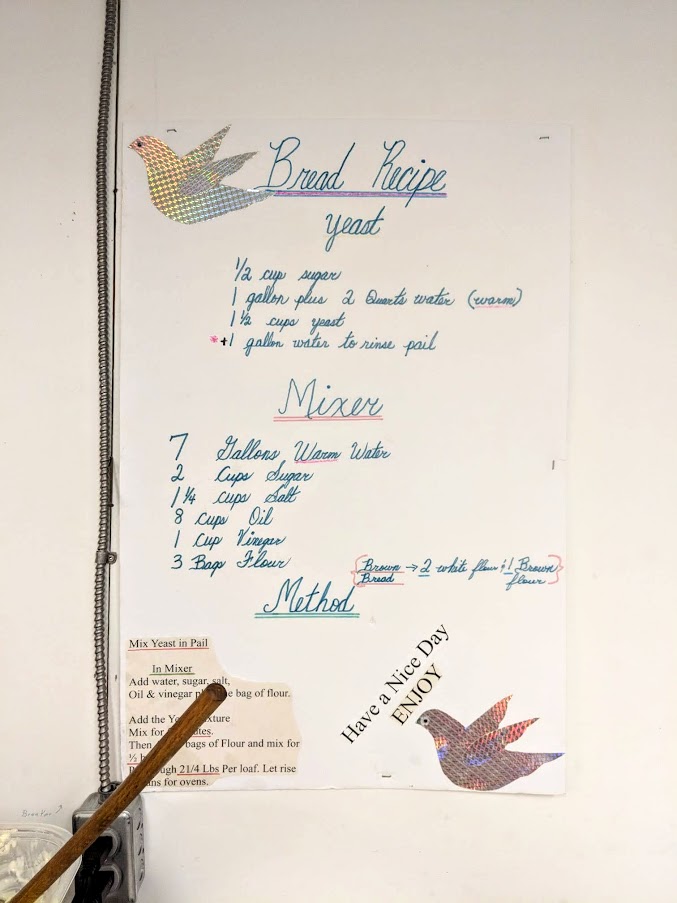 Bread Recipe
Yeast
1/2 cup sugar
1 gallon plus 2 Quarts water (warm)
1 1/2 cups yeast
*+1 gallon water to rinse pail
Mixer
7 Gallons Warm Water
2 Cups Sugar
1 1/4 cups Salt
8 Cups Oil
1 Cup Vinegar
3 Bags Flour
{Brown Bread → 2 white flour & 1 Brown flour}
Method
Mix Yeast in Pail
In Mixer
Add water, sugar, salt,
Oil & vinegar bag of flour.
Add the
Mix for
Then bags of Flour and mix for
½
21/4 Lbs Per loaf. Let rise
for ovens.
Have a Nice Day
ENJOY